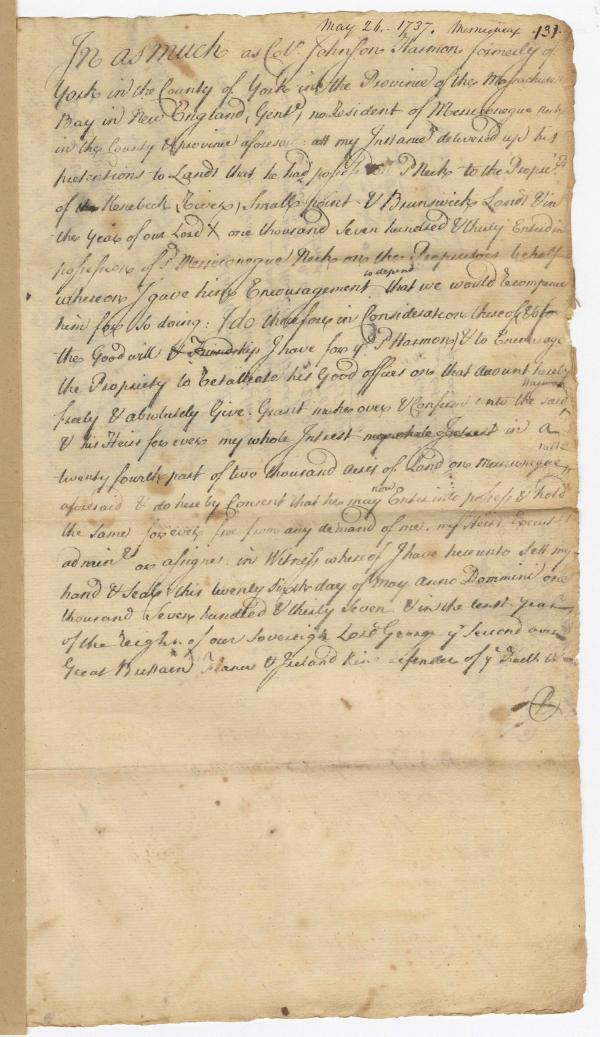 May 26.. 1737. Merriconeag 131.
In as much as Col.º Johnson Harmon formerly of
York in the County of York in the Province of the Massachuse
Bay in New England, Gent.ⁿ, now Resident of Merriconegue Neck
in the County & province aforesaid: att my Instance delivered up his
pretentions to Lands that he had possess on s.d Neck to the Propri.rs
of the Kenebeck River, Small point & Brunswick Lands & in
the year of our Lord one thousand seven hundred & thirty Entred in
possession of s.d Merriconegue Neck on the Proprietors behalf
whereon I gave him Encouragement to depend that we would Recompence
him for so doing: I do therefore in Consideration thereof & for
the Good will & Friendship I have for y.e s.d Harmon, & to Encourage
the Propriety to Retalleate his Good offices on that account hereby
freely & absolutely Give Grant make over & Confirm unto the said Harmon
& his Heirs for ever my whole Intrest my whole Intrest in a
twenty fourth part of two thousand acres of Land on Merriconegue Neck
aforesaid & do here by Consent that he may now Enter into possess & hold
the same for ever free from any demand of me, my Heirs, Execut.rs
admin.rs or assignes. in Witness whereof I have hereunto Sett my
hand & Seal this twenty Sixth day of May anno Dommini one
thousand seven hundred & thirty Seven & in the tenth year
of the Reighn of our Sovereigh Lord George y.e Second over
Great Brittain France & Ireland King defender of y.e Faith &